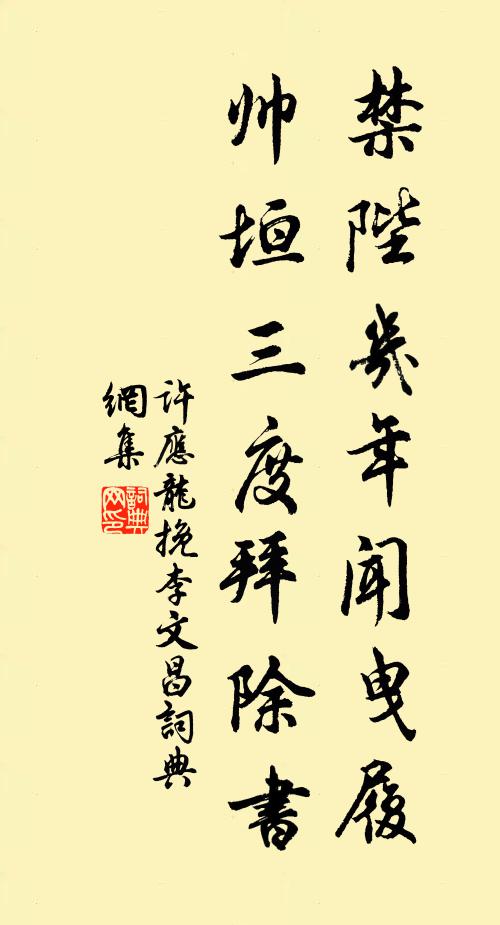 禁陛幾年聞曳履
帅垣三度拜除書
許應龍挽李文昌詞典
網集
詞典
网印